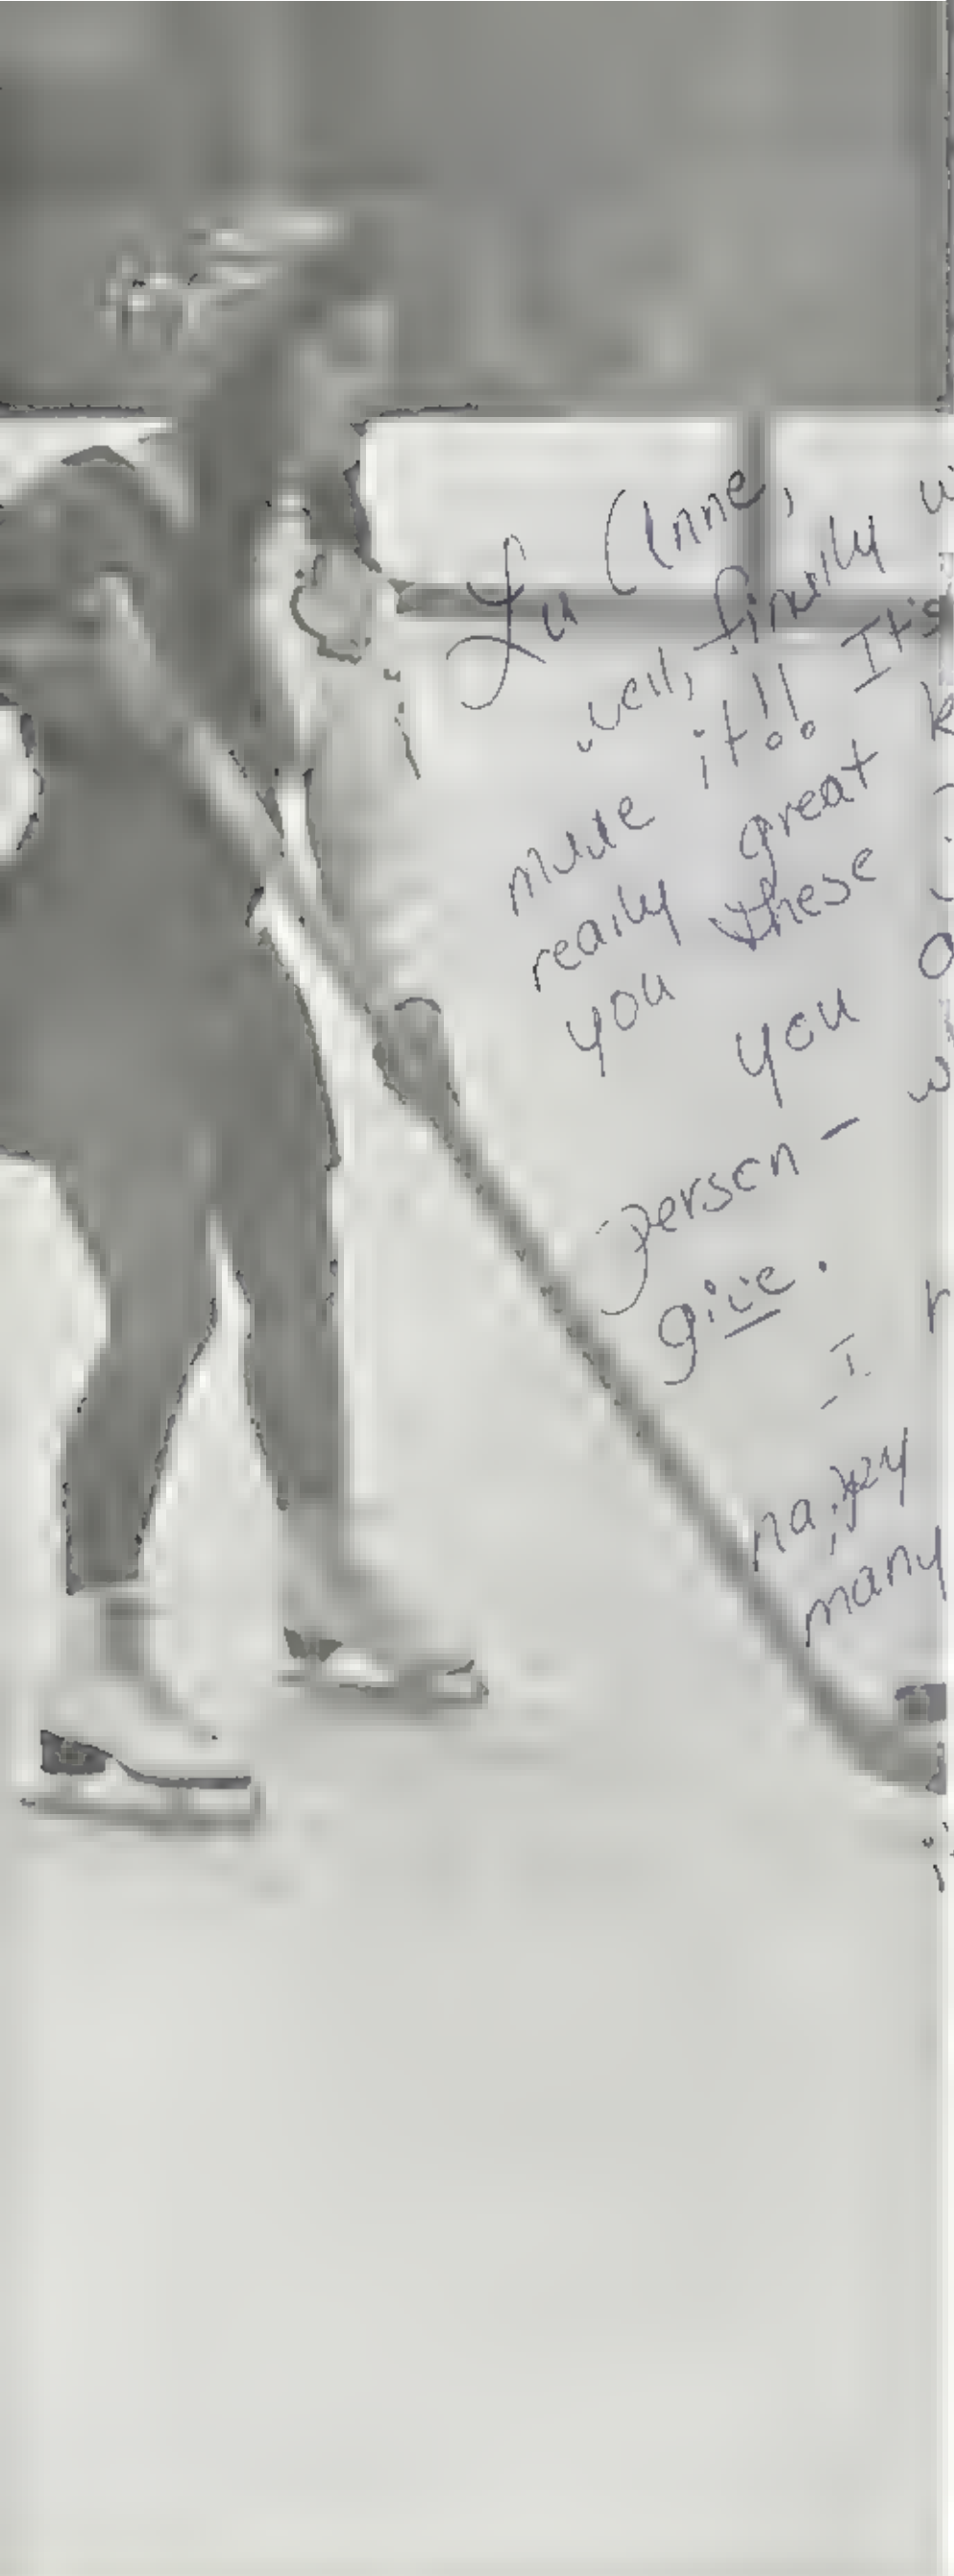 Lu Anne,
Well, finally w
made it!! It's
really great k
you these
you
person - w
give.
I r
happy
many